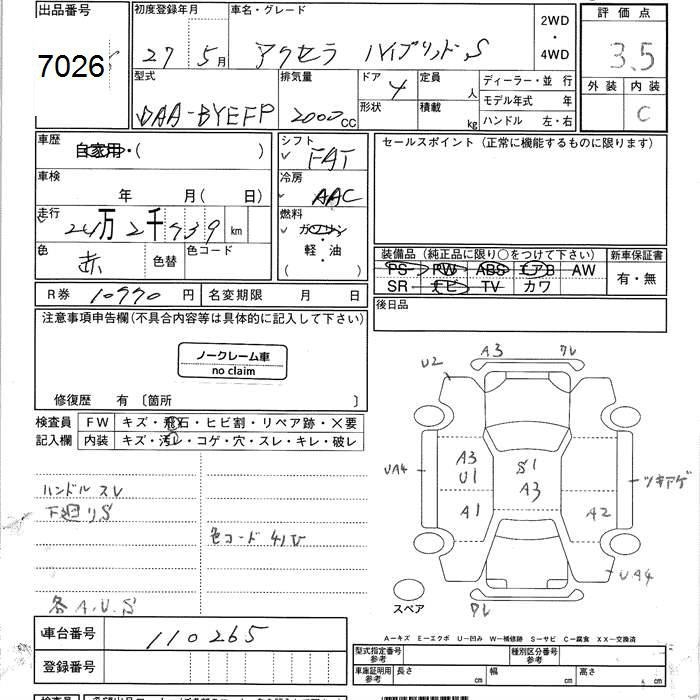 出品番号 初度登録年月 車名・グレード 2WD・4WD 評価点
7026 27年 5月 アクセラ ハイブリッドS 3.5
型式 排気量 ドア 4 定員 人 ディーラー・並行 外装 内装
DAA-BYEFP 2000cc 形状 積載 kg モデル年式 年 C
ハンドル 左・右
車歴 自家用・( ) シフト FAT セールスポイント (正常に機能するものに限ります)
車検 年 月( 日) 冷房 AAC
走行 24万2千939 km 燃料 ガソリン
軽・油
( )
色 赤 色替 色コード 装備品 (純正品に限り○をつけて下さい) 新車保証書
PS PW ABS エアB AW 有・無
SR ナビ TV カワ
R券 10990円 名変期限 月 日 後日品
注意事項申告欄(不具合内容等は具体的に記入して下さい)
ノークレーム車
no claim
修復歴 有 〔箇所 〕
検査員 FW キズ・飛石・ヒビ割・リペア跡・×要
記入欄 内装 キズ・汚レ・コゲ・穴・スレ・キレ・破レ
ハンドルスレ
下廻りS
色コード 41V
各A.U.S
U2 A3 ワレ
UA4 A3 U1 S1 A3 ツキアゲ
A1 A2
UA4
スペア ワレ
A-キズ E-エクボ U-凹み W-補修跡 S-サビ C-腐食 XX-交換済
車台番号 110265
登録番号
型式指定番号 参考 種別区分番号 参考
車庫証明用 参考 長さ cm 幅 cm 高さ cm